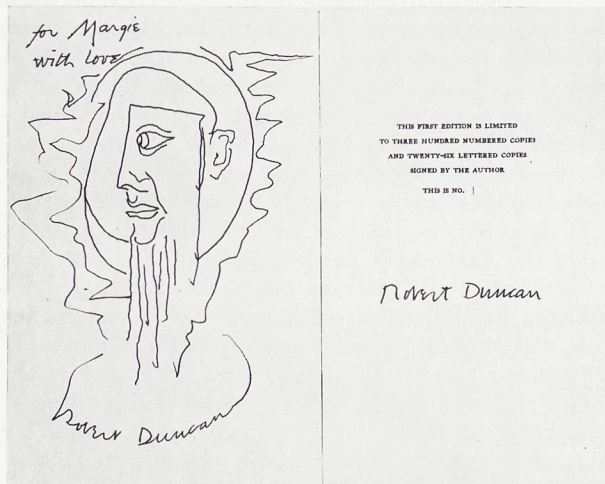 for Margie
with love
Robert Duncan
THIS FIRST EDITION IS LIMITED
TO THREE HUNDRED NUMBERED COPIES
AND TWENTY-SIX LETTERED COPIES
SIGNED BY THE AUTHOR
THIS IS NO. 1
Robert Duncan